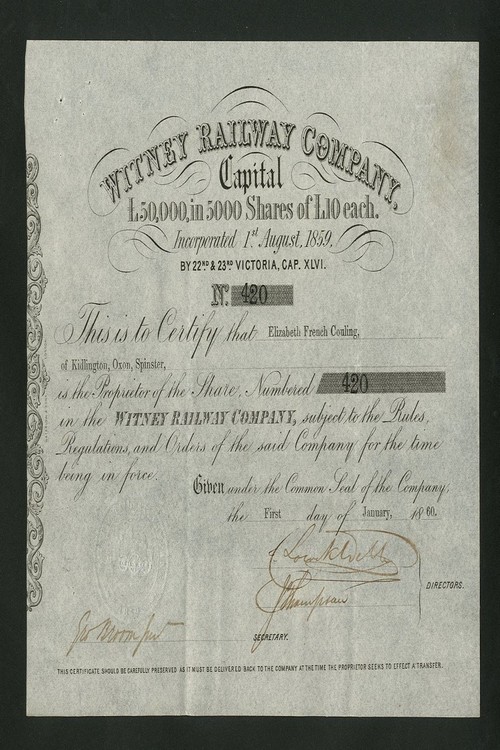 WITNEY RAILWAY COMPANY.
Capital
£50,000, in 5000 Shares of £10 each.
Incorporated 1st August, 1859,
BY 22ND & 23RD VICTORIA, CAP. XLVI.
No. 420
This is to Certify that Elizabeth French Couling,
of Kidlington, Oxon, Spinster,
is the Proprietor of the Share, Numbered 420
in the WITNEY RAILWAY COMPANY, subject to the Rules,
Regulations, and Orders of the said Company for the time
being in force.
Given under the Common Seal of the Company,
the First day of January, 1860.
DIRECTORS.
Thompson
SECRETARY.
THIS CERTIFICATE SHOULD BE CAREFULLY PRESERVED AS IT MUST BE DELIVERED BACK TO THE COMPANY AT THE TIME THE PROPRIETOR SEEKS TO EFFECT A TRANSFER.